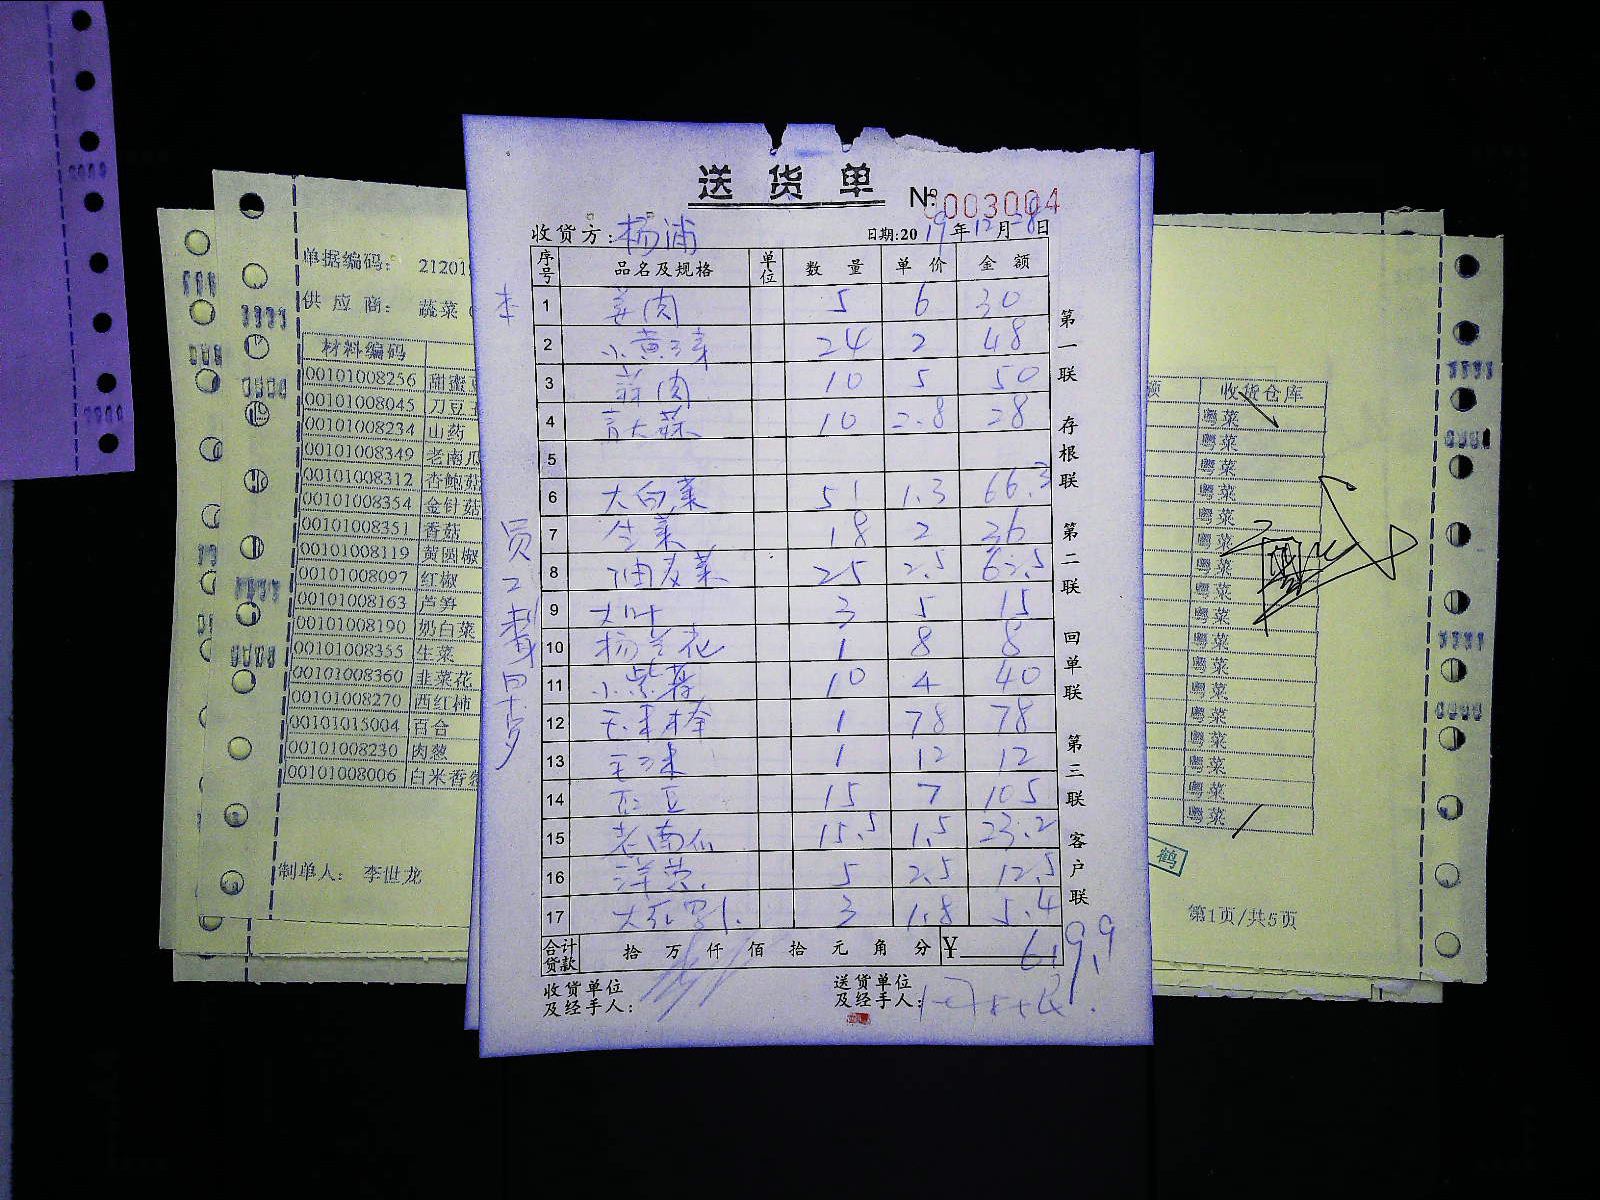 送货单
№ 0003004
收货方:杨浦
日期:2019年12月28日
序号 品名及规格 单位 数量 单价 金额
1 姜肉 5 6 30
2 小黄 24 2 48
3 蒜肉 10 5 50
4 青大蒜 10 2.8 28
5
6 大白菜 51 1.3 66.3
7 生菜 18 2 36
8 油麦菜 25 2.5 62.5
9 大叶 3 5 15
10 杨兰花 1 8 8
11 小紫薯 10 4 40
12 1 78 78
13 1 12 12
14 15 7 105
15 老南瓜 15.5 1.5 23.2
16 洋 5 2.5 12.5
17 3 1.8 5.4
合计货款 拾 万 仟 佰 拾 元 角 分 ¥ 619.9
收货单位及经手人:
送货单位及经手人:
第一联 存根联 第二联 回单联 第三联 客户联
员工
单据编码: 21201
供应商: 蔬菜
材料编码
00101008256 甜蜜
00101008045 刀豆
00101008234 山药
00101008349 老南瓜
00101008312 杏鲍菇
00101008354 金针菇
00101008351 香菇
00101008119 黄圆椒
00101008097 红椒
00101008163 芦笋
00101008190 奶白菜
00101008355 生菜
00101008360 韭菜花
00101008270 西红柿
00101015004 百合
00101008230 肉葱
00101008006 白米香葱
制单人: 李世龙
额 收货仓库
粤菜
粤菜
粤菜
粤菜
粤菜
粤菜
粤菜
粤菜
粤菜
粤菜
粤菜
粤菜
粤菜
粤菜
粤菜
粤菜
粤菜
鹤
第1页/共5页